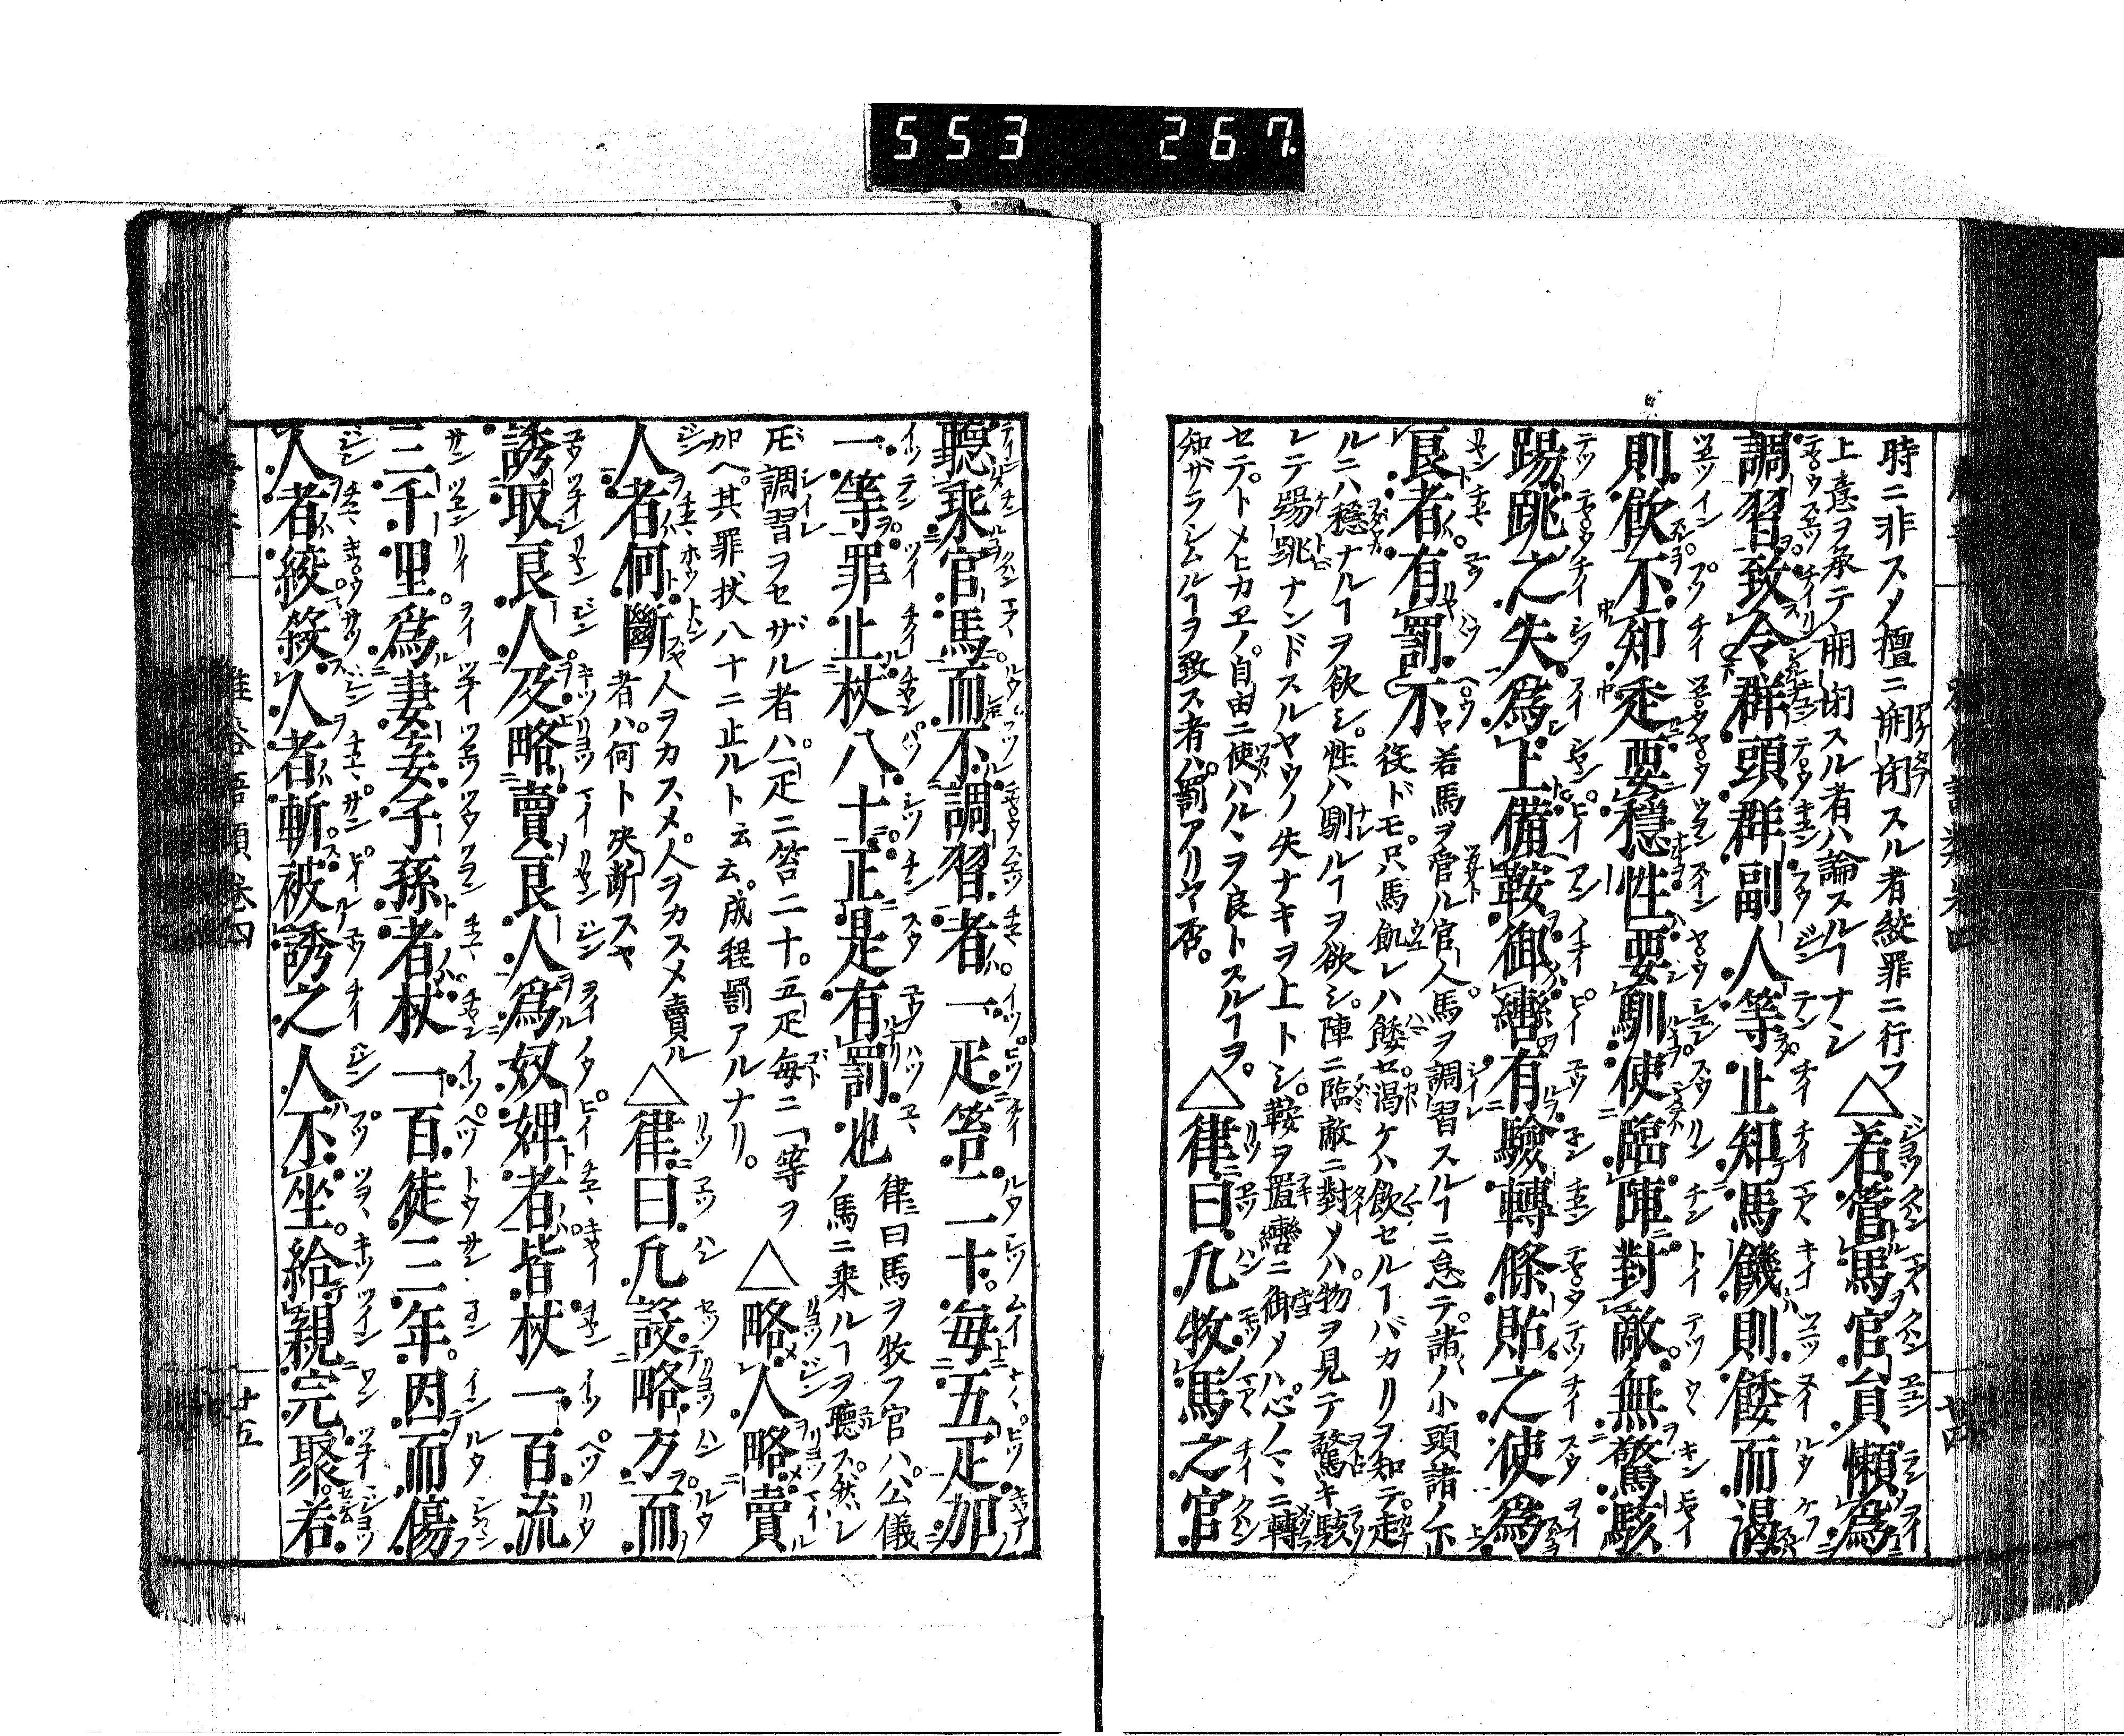 553 267
時ニ非スノ擅ニ開閉スル者絞罪ニ行フ
上意ヲ承テ開閉スル者ハ論スルヿナシ
△若管馬官員懶為
調習致令群頭群副人等止知馬饑則餧而渇
則飲不知走要穏性要馴使臨陣對敵無驚駭
踢跳之失為上備鞍御轡有驗轉條貼之使為
良者有罰不
若馬ヲ管ル官人馬ヲ調習スルヿニ怠テ諸ノ小頭諸ノ下
役ドモ只馬飢レハ餧セ渇ケハ飲セルヿバカリヲ知テ走
ルニハ穏ナルヿヲ欲シ性ハ馴ルヿヲ欲シ陣ニ臨敵ニ對メハ物ヲ見テ驚キ駭
レテ踢跳ナンドスルヤウノ失ナキヲ上トシ鞍ヲ置轡ニ御メハ心ノマヽニ轉
セテトメヒカヱノ自由ニ使ハルヽヲ良トスルヿヲ
知ザラシムルヿヲ致ス者ハ罰アリヤ否
△律曰凢牧馬之官
聽乘官馬而不調習者一疋笞二十毎五疋加
一等罪止杖八十正是有罰也
律ニ曰馬ヲ牧フ官ハ公儀
ノ馬ニ乗ルヿヲ聽ス然レ
𪜈調習ヲセザル者ハ一疋ニ笞二十五疋毎ニ一等ヲ
加ヘ其罪杖八十ニ止ルト云云成程罰アルナリ
△略人略賣
人者何斷
人ヲカスメ人ヲカスメ賣ル
者ハ何ト决断スヤ
△律曰凢設略方而
誘取良人及略賣良人為奴婢者皆杖一百流
三千里為妻妾子孫者杖一百徒三年因而傷
人者絞殺人者斬被誘之人不坐給親完聚若
雅俗語類巻四
廿五